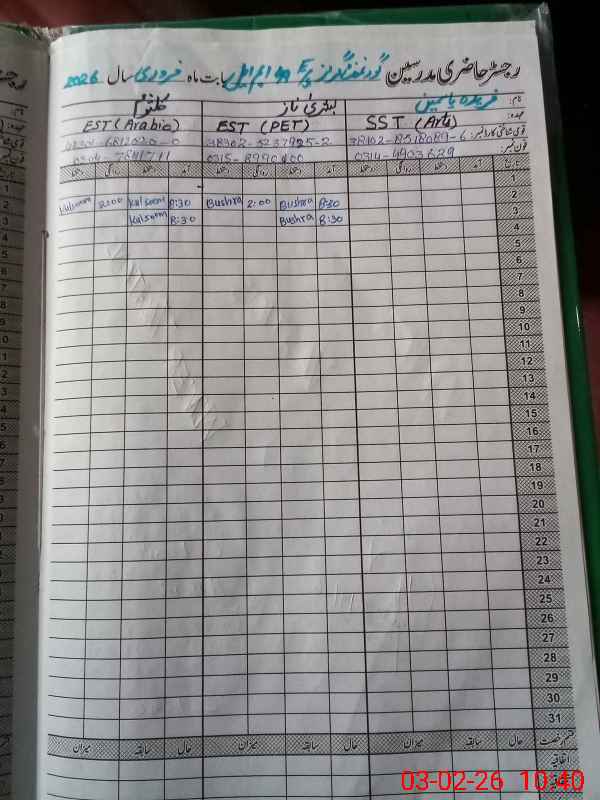 رجسٹر حاضری مدرسین گورنمنٹ گرلز بابت ماہ فروری سال 2026
نام: فریدہ یاسمین بشریٰ ناز کلثوم
عہدہ: SST (Arts) EST (PET) EST (Arabic)
قومی شناختی کارڈ نمبر: 38102-8518089-6 38302-5237925-2
فون نمبر: 0314-4903629
تاریخ آمد دستخط روانگی دستخط آمد دستخط روانگی دستخط آمد دستخط روانگی دستخط
1
2 8:30 Bushra 2:00 Bushra 8:30 Kalsoom 2:00 Kalsoom
3 8:30 Bushra 8:30 Kalsoom
4
5
6
7
8
9
10
11
12
13
14
15
16
17
18
19
20
21
22
23
24
25
26
27
28
29
30
31
قسم رخصت حال سابقہ میزان حال سابقہ میزان حال سابقہ میزان
اتفاقیہ
03-02-26 10:40